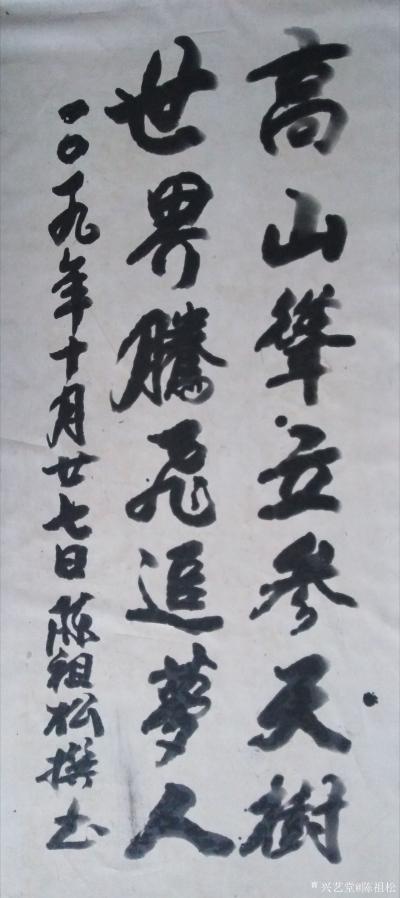 高山聳立參天樹
世界騰飛追夢人
二〇一九年十月廿七日陈祖松撰书
兴艺堂@陈祖松